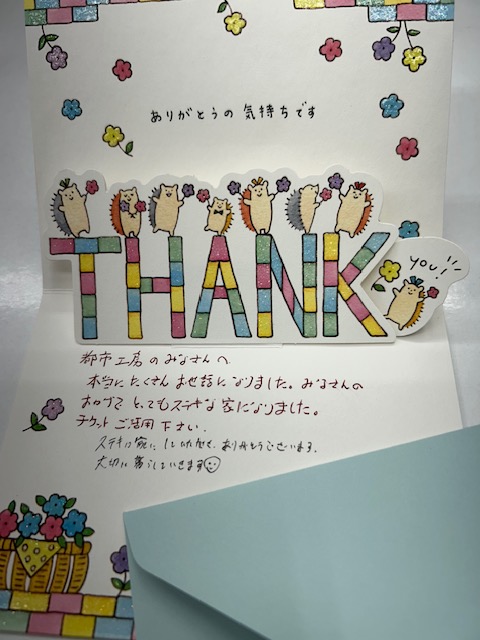 ありがとうの気持ちです
THANK
you!
都市工房のみなさんへ
本当にたくさんお世話になりました。みなさんの
おかげで とってもステキな家になりました。
チケット ご活用下さい.
ステキな家に していただき、ありがとうございます.
大切に暮らしていきます